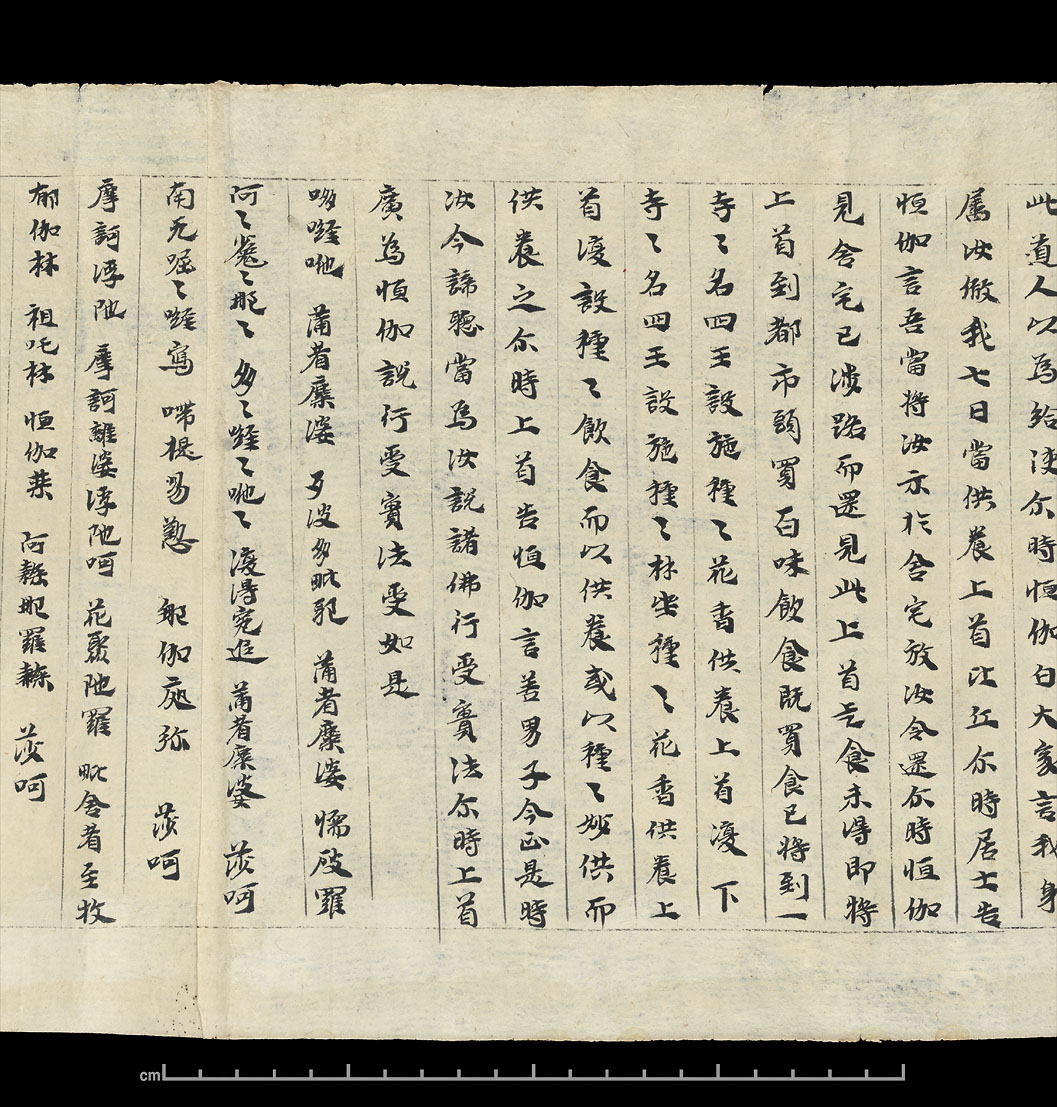 此道人以為給使尒時恒伽白大家言我身
属汝俶我七日當供養上首比丘尒時居士告
恒伽言吾當將汝示於舍宅放汝令還尒時恒伽
見舍宅已涉路而還見此上首乞食未得即將
上首到都市頭買百味飲食既買食已將到一
寺〻名四王設施種〻花香供養上首復下
寺〻名四王設施種〻林坐種〻花香供養上
首復設種〻飲食而以供養或以種〻妙供而
供養之尒時上首告恒伽言善男子今正是時
汝今諦聽當為汝說諸佛行受實法尒時上首
廣為恒伽說行受實法受如是
哆 蒲耆糜婆 波多毗 蒲者糜婆 懦 羅
阿〻 〻 〻 多〻 〻 〻 復得究追 蒲耆糜婆 莎呵
南无 〻 寫 啼提易 伽 弥 莎呵
摩訶浮陁 摩訶離婆浮陁呵 花聚陁羅 毗舍者至牧
郁伽林 祖吒林 恒伽 阿 羅 莎呵